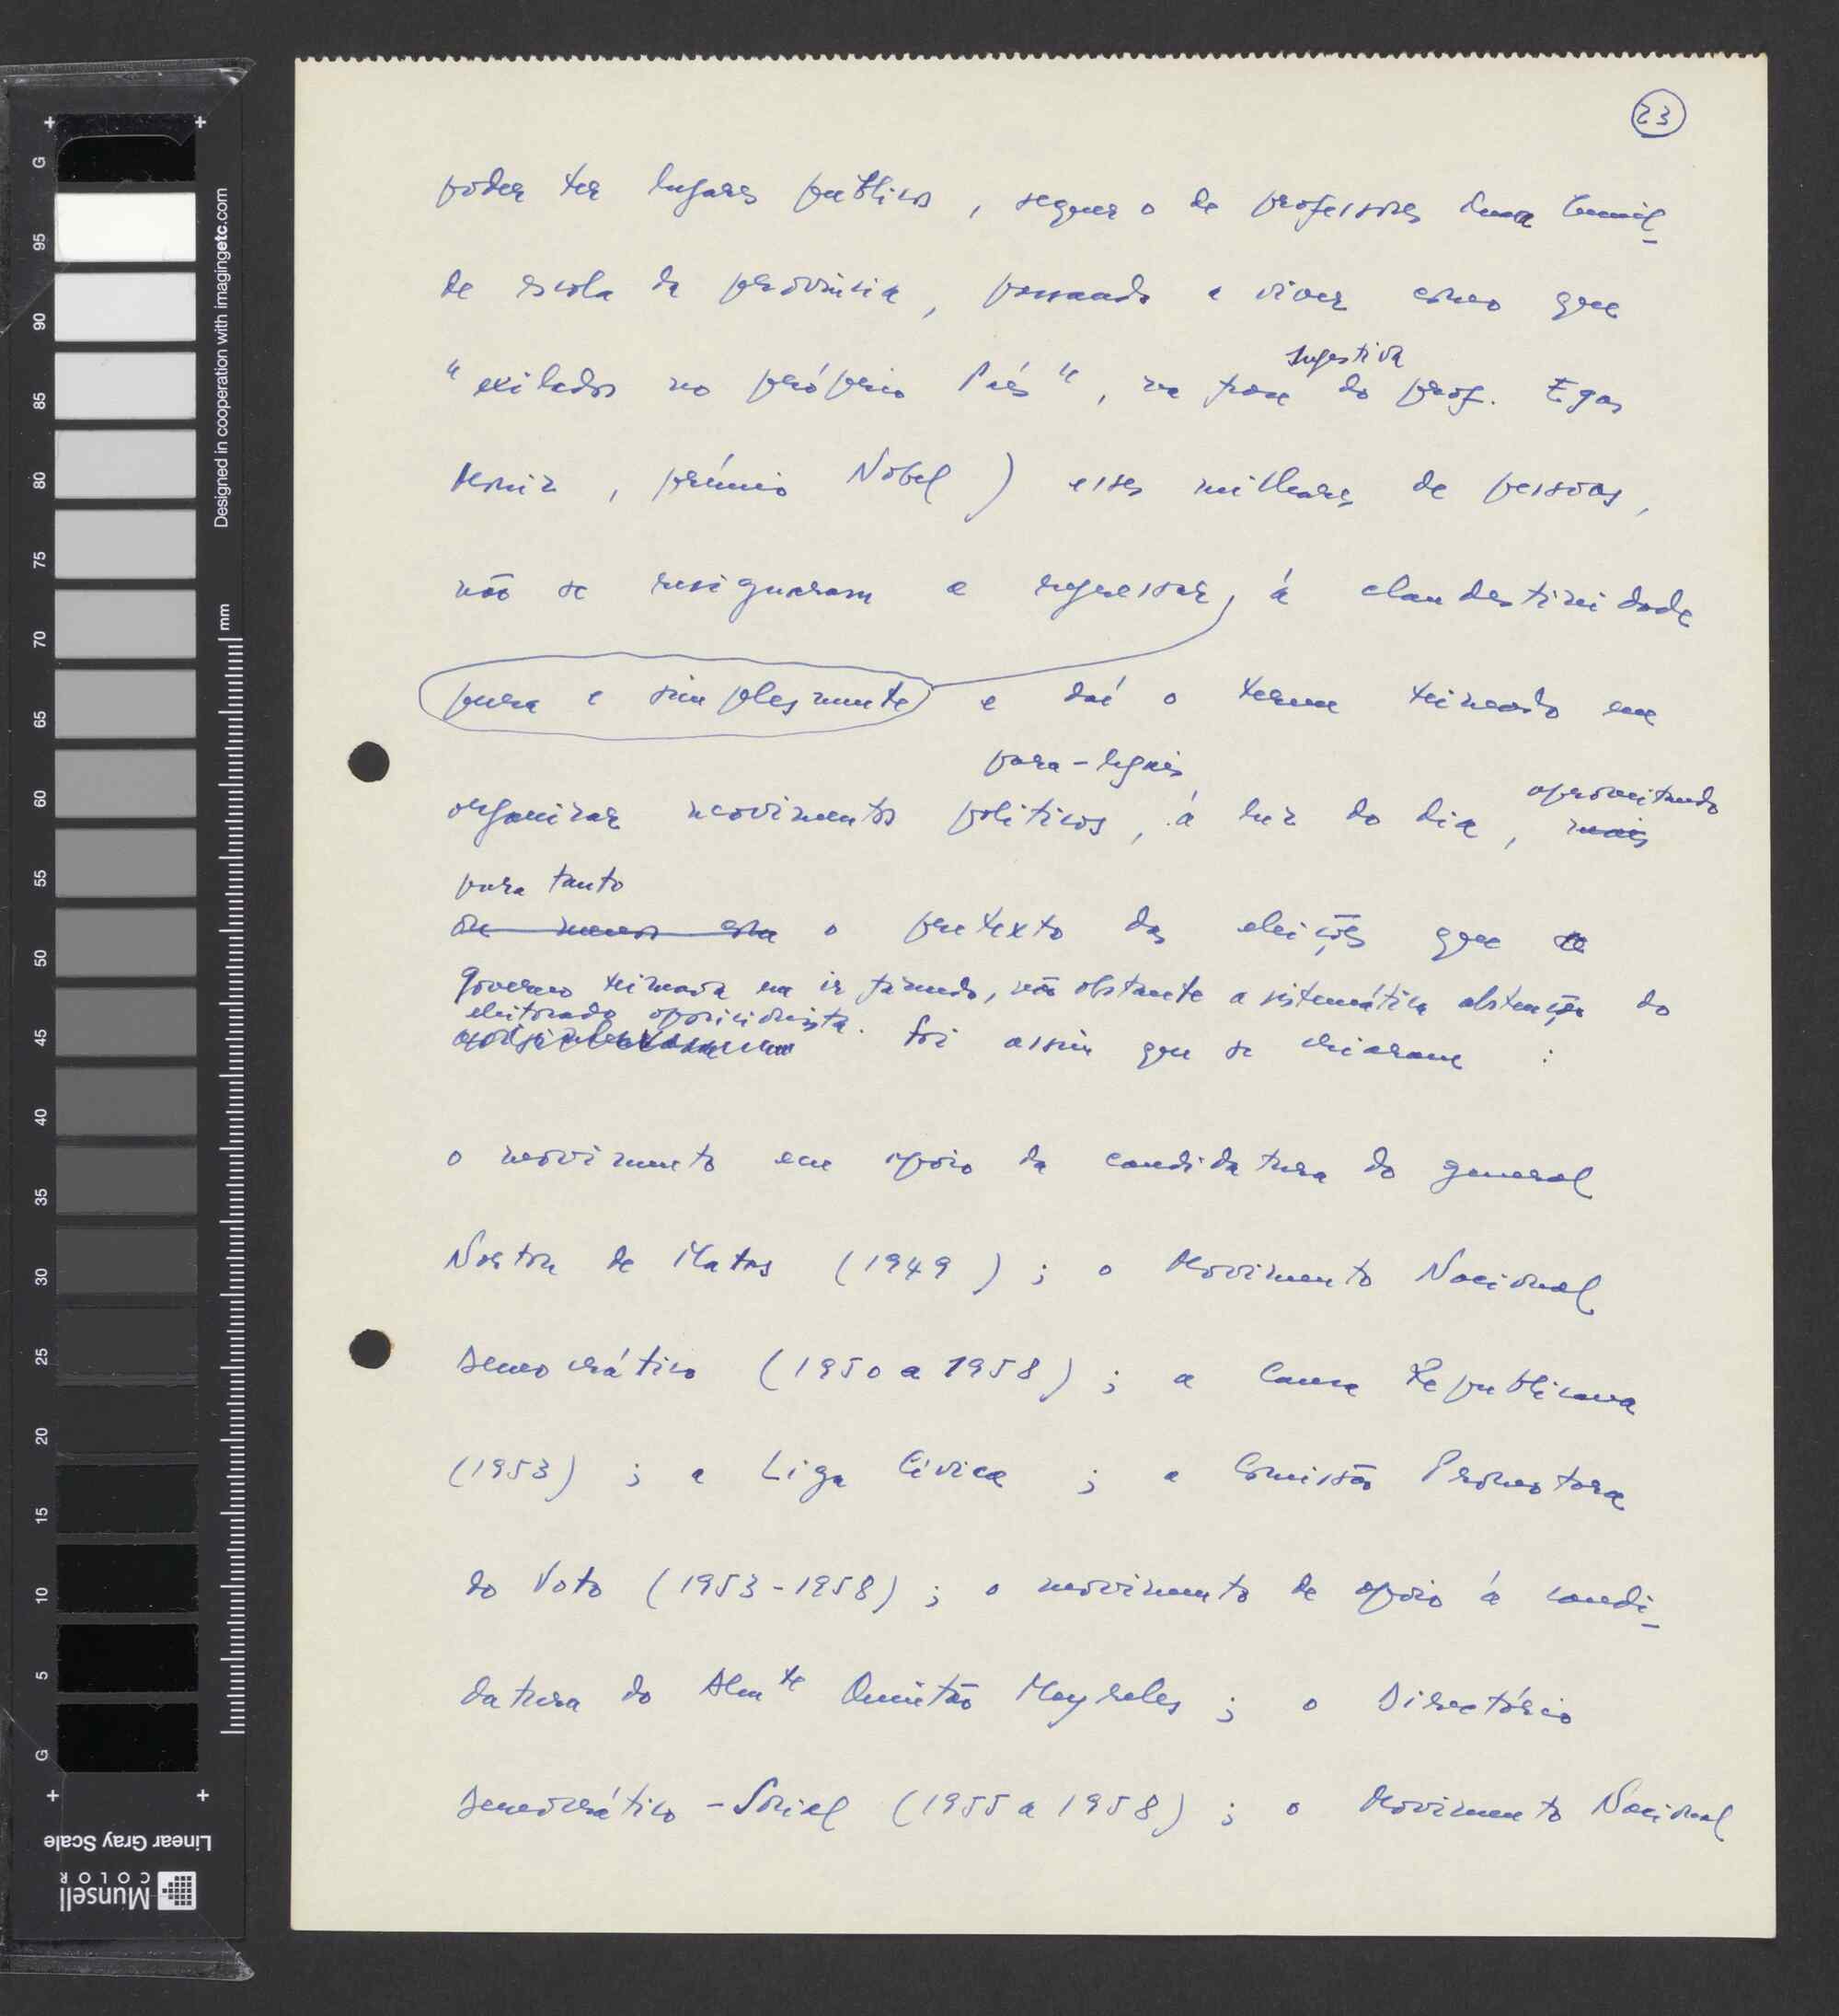 23
poder ter lugares publicos, sequer o de professores duma humil-
de escola da província, passando a viver como que
"exilados no próprio País", na frase sugestiva do prof. Egas
Moniz, prémio Nobel) esses milhares de pessoas,
não se resignaram a regressar, á clandestinidade
pura e simplesmente e daí o terem teimado em
para-legais,
organizar movimentos politicos, á luz do dia, mais aproveitando
para tanto
ou menos o pretexto das eleições que o
Governo teimava em ir fazendo, não obstante a sistemática abstenção do
eleitorado oposicionista.
Foi assim que se criaram :
o movimento em apoio da candidatura do general
Norton de Matos (1949) ; o Movimento Nacional
Democrático (1950 a 1958) ; a Causa Republicana
(1953) ; a Liga Cívica ; a Comissão Promotora
do Voto (1953-1958) ; o movimento de apoio á candi-
datura do Almte Quintão Meyreles ; o Directório
Democrático-Social (1955 a 1958) ; o Movimento Nacional
Designed in cooperation with imagingetc.com
mm
G 95 90 85 80 75 70 65 60 55 50 45 40 35 30 25 20 15 10 5 G
Linear Gray Scale
Munsell
COLOR